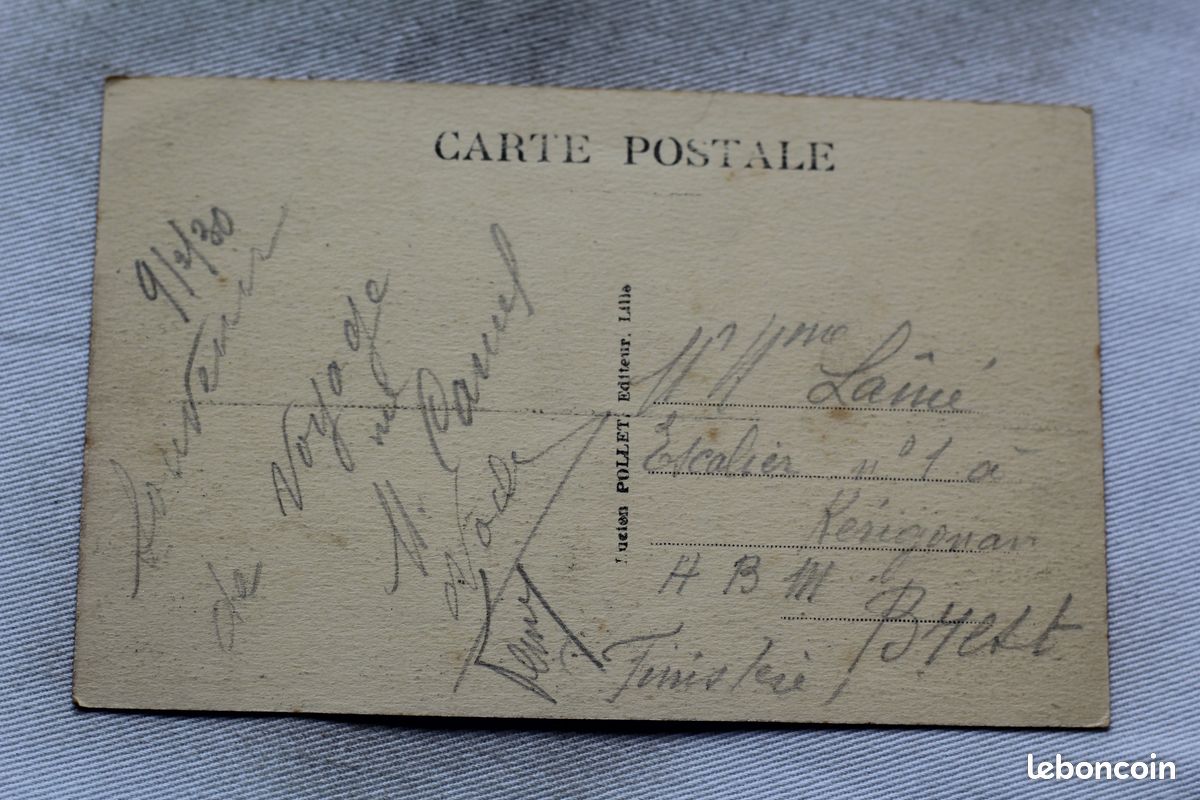 CARTE POSTALE
9/2/30
Souvenir
de voyage
M.
Lucien POLLET, Editeur. Lille
Mr Mme
Lainé
Escalier n° 1 à
Kérigonan
H B M Brest
Finistère
leboncoin